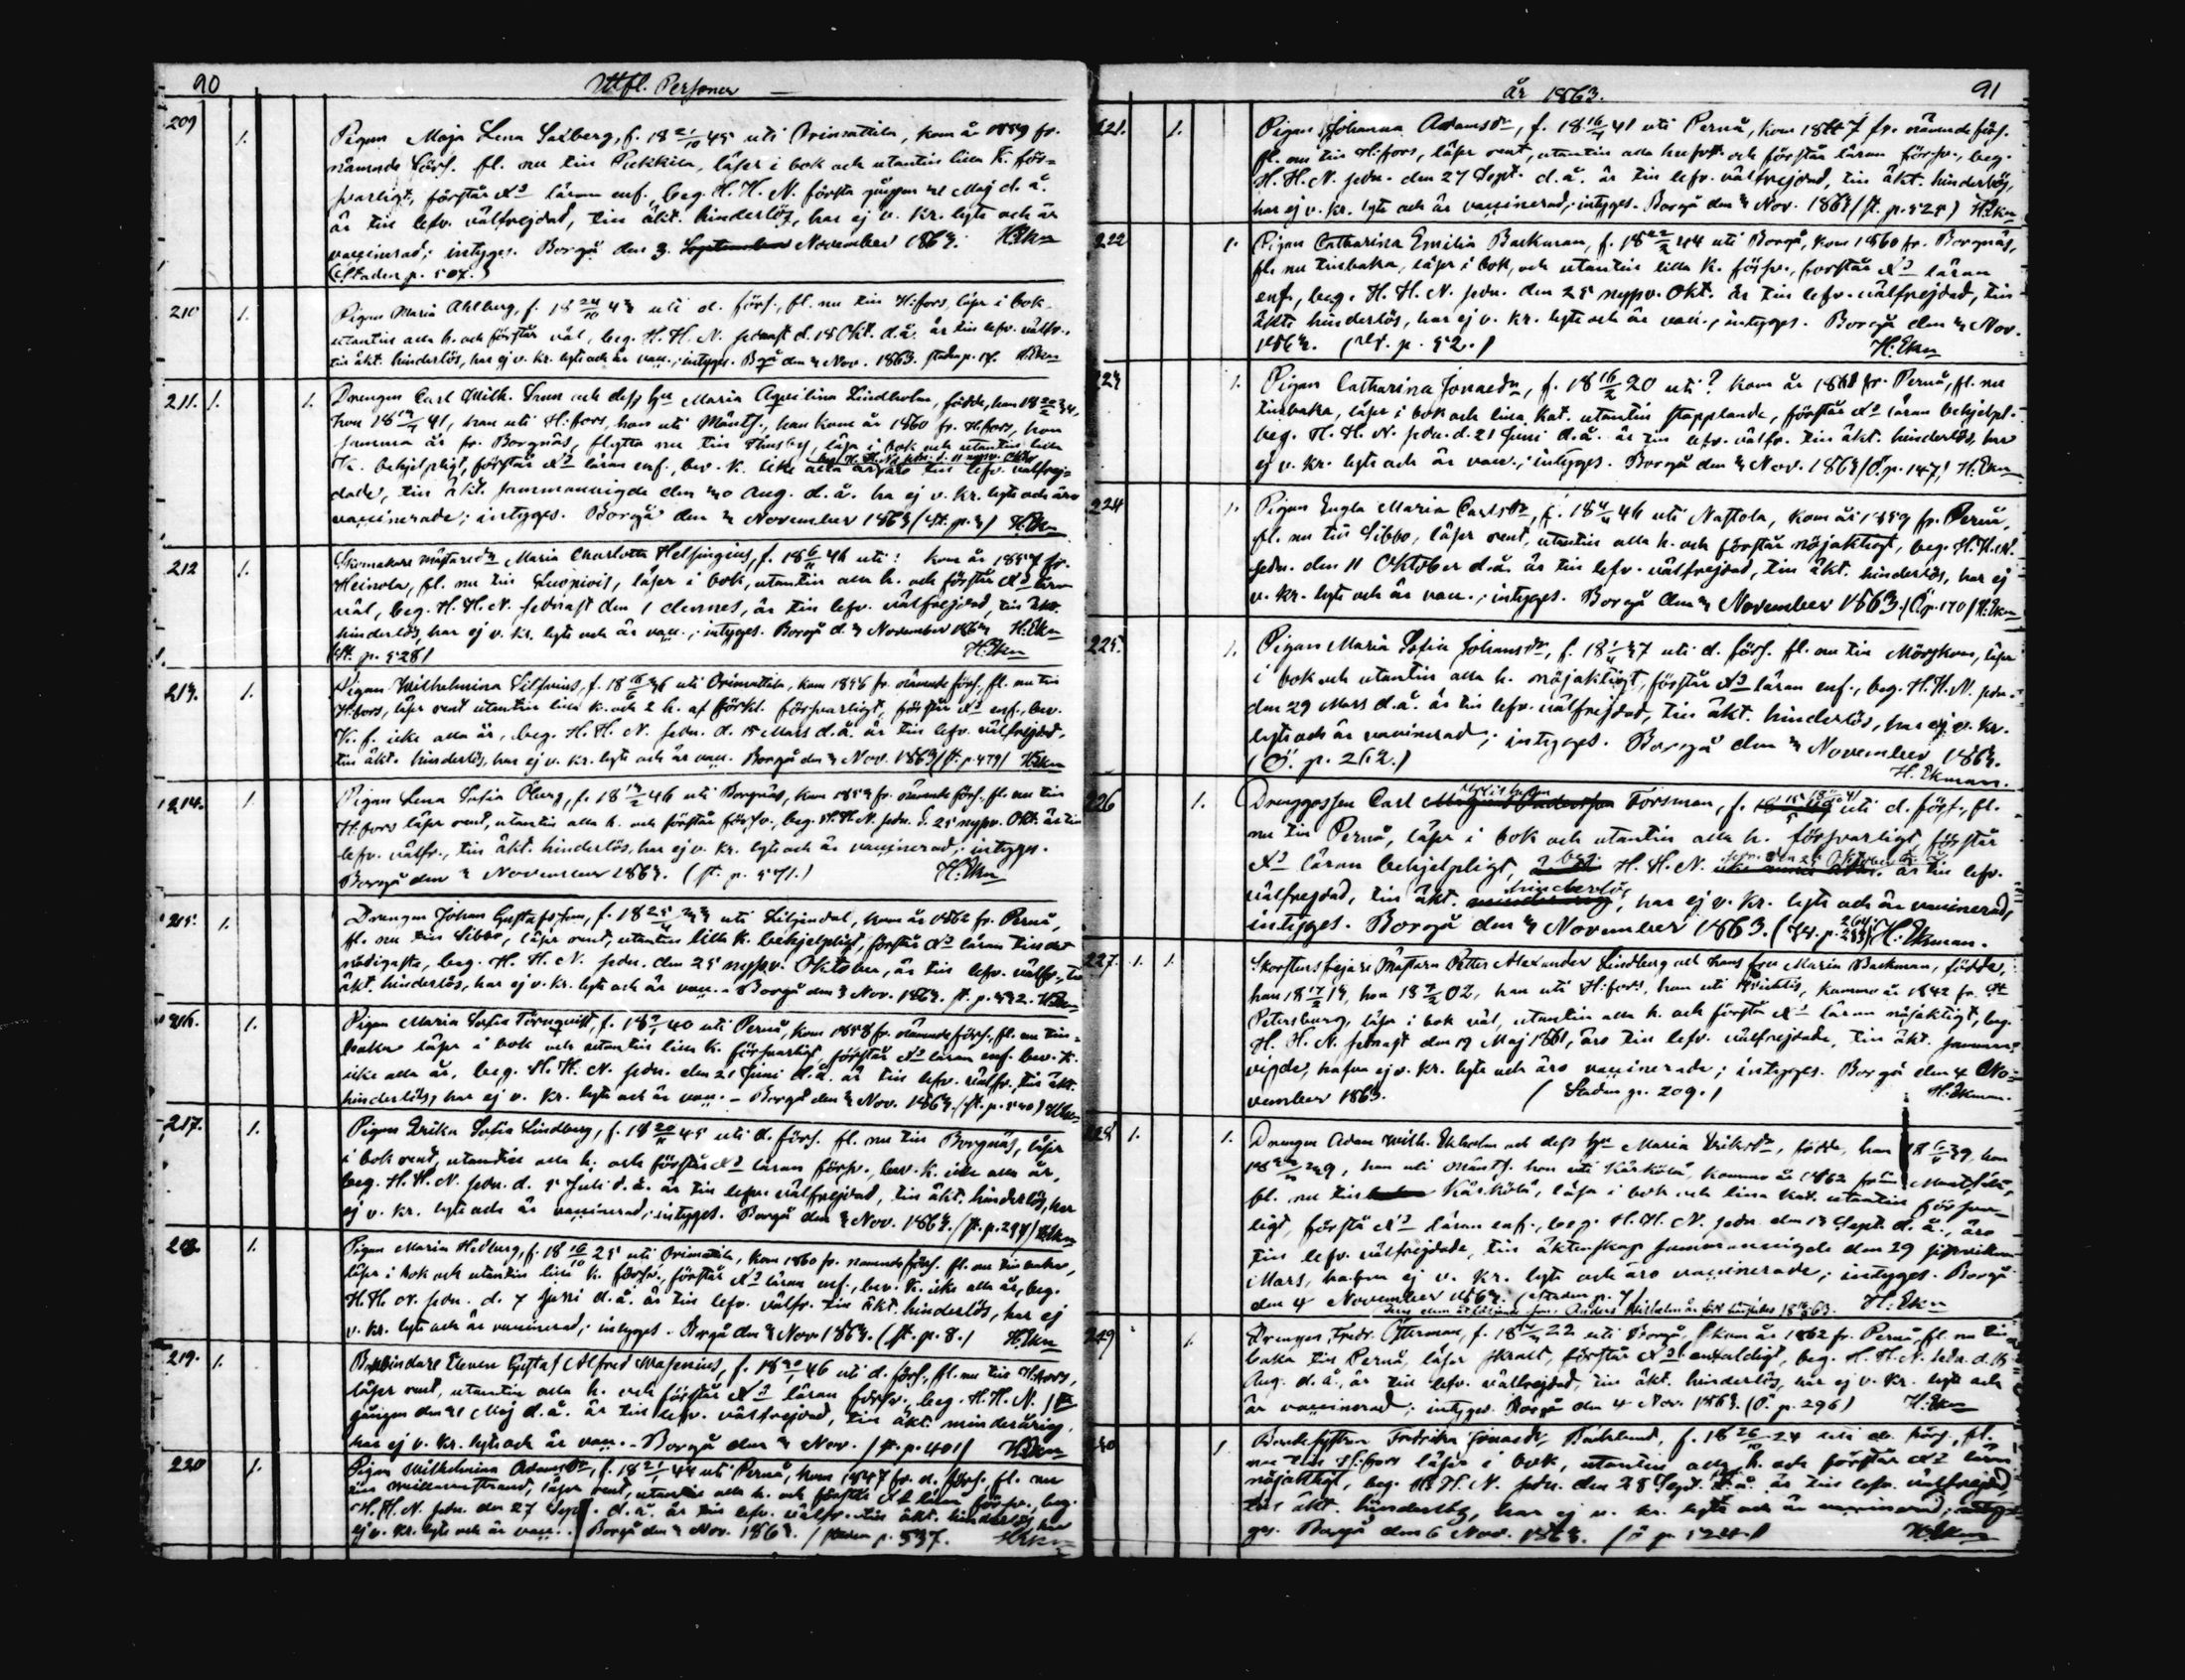 90
Utfl. Personer
209
1.
Pigan Maja Lena Salberg, f. 18 21/10 45 uti Orimattila, kom år 1859 fr.
nämnde förs. fl. nu till Pukkila, läser i bok och utantill lilla K. för-
svarligt, förstår Xd läran enf., beg. H. H. N. första gången Maj d. å.
är till lefv. välfrejdad, till äkt. hinderlös, har ej v. kr. lyte och är
vaccinerad; intygas. Borgå den 3. November 1863. H.Ekn
(Staden p. 507.)
210
1.
Pigan Maria Ahlberg, f. 18 24/10 43 uti d. förs., fl. nu till H:fors, läser i bok
utantill alla h. och förstår väl, beg. H. H. N. sednast d. 18 Okt. d.å. är till lefv. välfr.,
till äkt. hinderlös, har ej v. kr. lyte och är vacc.; intygas. Bgå den 3 Nov. 1863. H.Ekn
211. 1. 1.
Drengen Carl Wilh. och dess hu Maria Aqvilina Lindholm, födde, han 18 22/2 34,
hon 18 41, han uti H:fors, hon uti Mänts., han kom år 1860 fr. H:fors, hon
samma år fr. Borgnäs, flytta nu till Thusby, läsa i bok och utantill lilla
K. behjelpligt, förstår Xd läran enf., bev. K. icke alla år, äro till lefv. välfrej-
beg. H. H. N. sedn. d. 11 nypv. Okto
dade, till äkt. sammanvigde den 30 Aug. d. å. ha ej v. kr. lyte och äro
vaccinerade; intygas. Borgå den 3 November 1863 (St. p. 3) H.Ekn
212
1.
Skomakare mästaredr Maria Charlotta Helsingius, f. 18 6/11 46 uti: kom år 1857 fr.
Heinola, fl. nu till Kuopiois, läser i bok, utantill alla h. och förstår Xd läran
väl, beg. H. H. N. sednast den 1 dennes, är till lefv. välfrejdad, till äkt.
hinderlös, har ej v. kr. lyte och är vacc.; intygas. Borgå d. 3 November 1863 H.Ekn
(St. p. 528) H.Ekn
213.
1.
Pigan Wilhelmina Silfvenius, f. 18 36 uti Orimattila, kom 1856 fr. nämnde förs., fl. nu till
H:fors, läser rent utantill lilla k. och 2 h. af förkl. försvarligt, förstår Xd enf., bev.
K. f. icke alla år, beg. H. H. N. sedn. d. 15 Mars d.å. är till lefv. välfrejdad,
till äkt. hinderlös, har ej v. kr. lyte och är vacc. Borgå den 3 Nov. 1863 (St. p. 479) H.Ekn
214.
1.
Pigan Lena Sofia Öberg, f. 18 46 uti Borgnäs, kom 1853 fr. nämnde förs., fl. nu till
H:fors läser rent, utantill alla h. och förstår försv., beg. H. H. N. sedn. d. 25 nypv. Okt. är till
lefv. välfr., till äkt. hinderlös, har ej v. kr. lyte och är vaccinerad; intygas.
Borgå den 3 November 1863. (St. p. 571.) H.Ekn
215.
1.
Drengen Johan Gustafsson, f. 18 25/4 33 uti Liljendal, kom år 1862 fr. Pernå,
fl. nu till Sibbo, läser rent, utantill lilla k. behjelpligt, förstår Xd läran till det
nödigaste, beg. H. H. N. sedn. den 25 nypv. Oktober, är till lefv. välfr., till
äkt. hinderlös, har ej v. kr. lyte och är vacc. - Borgå den 3 Nov. 1863. St. p. 532. H.Ekn
216.
1.
Pigan Maria Sofia Törnqvist, f. 18 40 uti Pernå, kom 1858 fr. nämnde förs., fl. nu till-
baka läser i bok och utantill lilla k. försvarligt, förstår Xd läran enf. bev. K.
icke alla år, beg. H. H. N. sedn. den 21 Juni d.å. är till lefv. välfr., till äkt.
hinderlös, har ej v. kr. lyte och är vacc. - Borgå den 3 Nov. 1863. (St. p. 530) H.Ekn
217.
1.
Pigan Erika Sofia Lindberg, f. 18 20/11 45 uti d. förs. fl. nu till Borgnäs, läser
i bok rent, utantill alla h. och förstår Xd läran försv., bev. k. icke alla år,
beg. H. H. N. sedn. d. 5 Juli d. å. är till lefv. välfrejdad, till äkt. hinderlös, har
ej v. kr. lyte och är vaccinerad; intygas. Borgå den 3 Nov. 1863. (St. p. 294) H.Ekn
218.
1.
Pigan Maria Hedberg, f. 18 16/10 25 uti Orimattila, kom 1860 fr. nämnde förs. fl. nu tillbaka,
läser i bok och utantill lilla k. försv., förstår Xd läran enf., bev. K. icke alla år, beg.
H. H. N. sedn. d. 7 Juni d. å. är till lefv. välfr. till äkt. hinderlös, har ej
v. kr. lyte och är vaccinerad; intygas. Borgå den 3 Nov 1863. (St. p. 8.) H.Ekn
219.
1.
Eleven Gustaf Alfred Masenius, f. 18 46 uti d. förs., fl. nu till H:fors,
läser rent, utantill alla h. och förstår Xd läran försv., beg. H. H. N.
gången den 31 Maj d. å. är till lefv. välfrejdad, till äkt. minderårig,
har ej v. kr. lyte och är vacc. - Borgå den 3 Nov. (St. p. 401) H.Ekn
220
1.
Pigan Wilhelmina Adamsdr, f. 18 21/1 44 uti Pernå, kom 1847 fr. d. förs., fl. nu
till Willmanstrand, läser rent, utantill alla h. och förstår Xd läran försv., beg.
H. H. N. sedn. den 27 Sept. d. å. är till lefv. välfr. till äkt. hinderlös, har
ej v. kr. lyte och är vacc. Borgå den 3 Nov. 1863. (Staden p. 537. H.Ekn
år 1863.
91
221.
1.
Pigan Johanna Adamsdr, f. 18 16/4 41 uti Pernå, kom 1847 fr. nämnde förs.
fl. nu till H:fors, läser rent, utantill alla hufvst. och förstår läran försv., beg.
H. H. N. sedn. den 27 Sept. d. å. är till lefv. välfrejdad, till äkt. hinderlös,
har ej v. kr. lyte och är vaccinerad; intygas. Borgå den 3 Nov. 1863 (St. p. 525) H.Ekn
222
1.
Pigan Catharina Emilia Backman, f. 18 22/2 44 uti Borgå, kom 1860 fr. Borgnäs,
fl. nu tillbaka, läser i bok, och utantill lilla K. försv., förstår Xd läran
enf., beg. H. H. N. sedn. den 25 nypv. Okt. är till lefv. välfrejdad, till
äkte hinderlös, har ej v. kr. lyte och är vacc.; intygas. Borgå den 3 Nov.
1863. (St. p. 52.) H:Ekn
223
1.
Pigan Catharina Jonaedr, f. 18 16/2 20 uti? kom år 1861 fr. Pernå, fl. nu
tillbaka, läser i bok och lilla kat. utantill stapplande, förstår Xd läran behjelpl.
beg. H. H. N. sedn. d. 21 Juni d.å. är till lefv. välfr. till äkt. hinderlös, har
ej v. kr. lyte och är vacc.; intygas. Borgå den 3 Nov. 1863 (Ö. p. 147) H.Ekn
224
1.
Pigan Engla Maria Carlsdr, f. 18 4/4 46 uti Nastola, kom år 1859 fr. Pernå,
fl. nu till Sibbo, läser rent, utantill alla h. och förstår nöjaktigt, beg. H. H. N.
sedn. den 11 Oktober d. å. är till lefv. välfrejdad, till äkt. hinderlös, har ej
v. kr. lyte och är vacc.; intygas. Borgå den 3 November 1863. (Ö p. 170) H.Ekn
225.
1.
Pigan Maria Sofia Johansdr, f. 18 37 uti d. förs. fl. nu till Mörskom, läser
i bok och utantill alla h. nöjaktigt, förstår Xd läran enf., beg. H. H. N. sedn.
den 29 Mars d. å. är till lefv. välfrejdad, till äkt. hinderlös, har ej v. kr.
lyte och är vaccinerad; intygas. Borgå den 3 November 1863.
(Ö. p. 262.) H. Ekman.
226
1.
Drenggossen Carl Forsman, f. uti d. förs., fl.
nu till Pernå, läser i bok och utantill alla h. försvarligt, förstår
Xd läran behjelpligt, beg. H. H. N. sedn. den 25 Oktober d. å. är till lefv.
välfrejdad, till äkt. hinderlös, har ej v. kr. lyte och är vaccinerad,
intygas. Borgå den 3 November 1863. (St. p. 264) H. Ekman.
227. 1. 1.
Skorstensfejare Mästaren Petter Alexander Lindberg och hans fru Maria Backman, födde,
han 18 17/2 15, hon 18 7/2 02, han uti H:fors, hon uti Wichtis, kommo år 1842 fr. St
Petersburg, läsa i bok väl, utantill alla h. och förstå Xd läran nöjaktigt, beg.
H. H. N. sednast den 19 Maj 1861, äro till lefv. välfrejdade, till äkt. samman-
vigde, hafva ej v. kr. lyte och äro vaccinerade; intygas. Borgå den 4 No-
vember 1863. (Staden p. 209.) H. Ekman.
228 1. 1.
Drengen Adam Wilh. Ekholm och dess hu Maria Eriksdr, födde, han 18 6/11 39, hon
18 39, han uti Mänts. hon uti Kärkölä, kommo år 1862 från Mäntsälä,
fl. nu till Kärkölä, läsa i bok och lilla kat. utantill försvar-
ligt, förstå Xd läran enf., beg. H. H. N. sedn. den 13 Sept. d. å., äro
till lefv. välfrejdade, till äktenskap sammanvigde den 29
Mars, hafva ej v. kr. lyte och äro vaccinerade; intygas. Borgå
den 4 November 1863. (Staden p. 7) H: Ekn
Anders Wilhelm är född härstädes 18 63.
229
1.
Drengen Fredr. Österman, f. 18 22 uti Borgå, kom år 1862 fr. Pernå, fl. nu till-
baka till Pernå, läser skralt, förstår Xd enfaldigt, beg. H. H. N. sedn. d. 16
Aug. d. å., är till lefv. välfrejdad, till äkt. hinderlös, har ej v. kr. lyte och
är vaccinerad; intygas. Borgå den 4 Nov. 1863. (Ö. p. 296) H.Ekn
230
1.
Fredrika Jonaedr f. 18 26/10 24 uti d. förs., fl.
nu till H:fors läser i bok, utantill alla h. och förstår Xd läran
nöjaktigt, beg. H. H. N. sedn. den 28 Sept. d. å. är till lefv. välfrejdad,
till äkt. hinderlös, har ej v. kr. lyte och är vaccinerad; intyg-
gs. Borgå den 6 Nov. 1863. (Ö p. 524.) H.Ekn